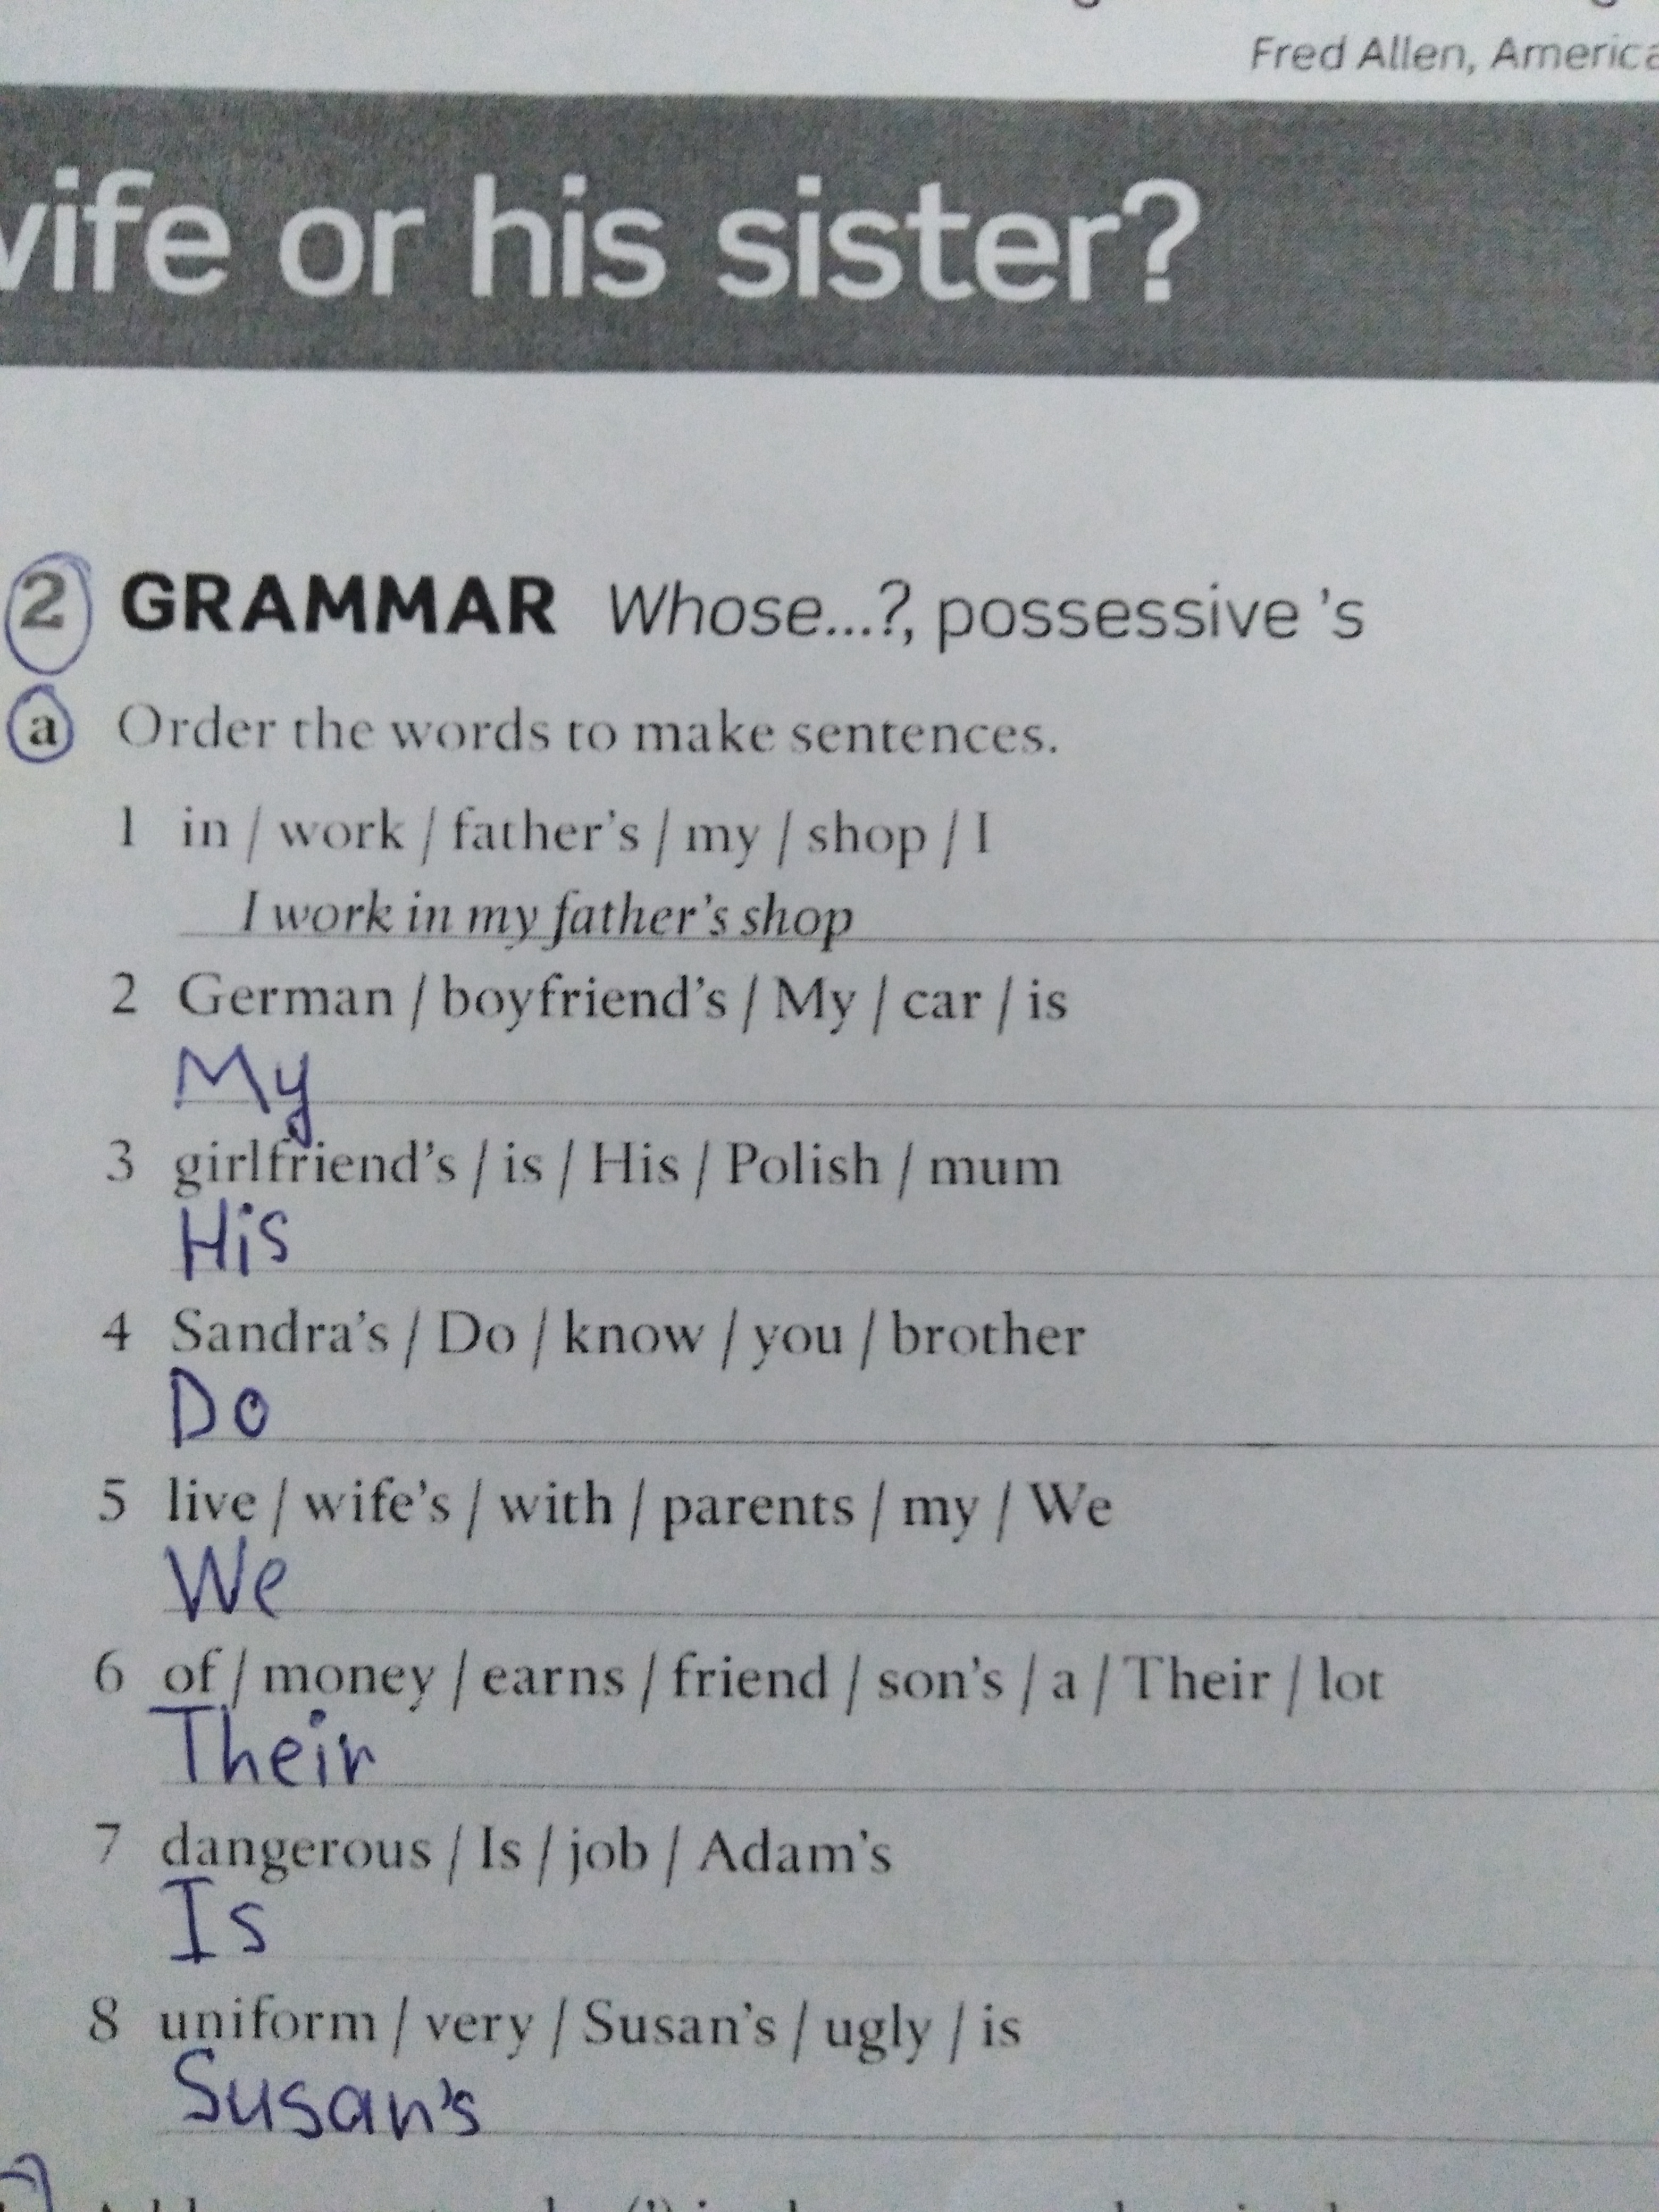 Fred Allen, America
wife or his sister?
2 GRAMMAR Whose...?, possessive 's
a Order the words to make sentences.
1 in / work / father's / my / shop / I
I work in my father's shop
2 German / boyfriend's / My / car / is
My
3 girlfriend's / is / His / Polish / mum
His
4 Sandra's / Do / know / you / brother
Do
5 live / wife's / with / parents / my / We
We
6 of / money / earns / friend / son's / a / Their / lot
Their
7 dangerous / Is / job / Adam's
Is
8 uniform / very / Susan's / ugly / is
Susan's